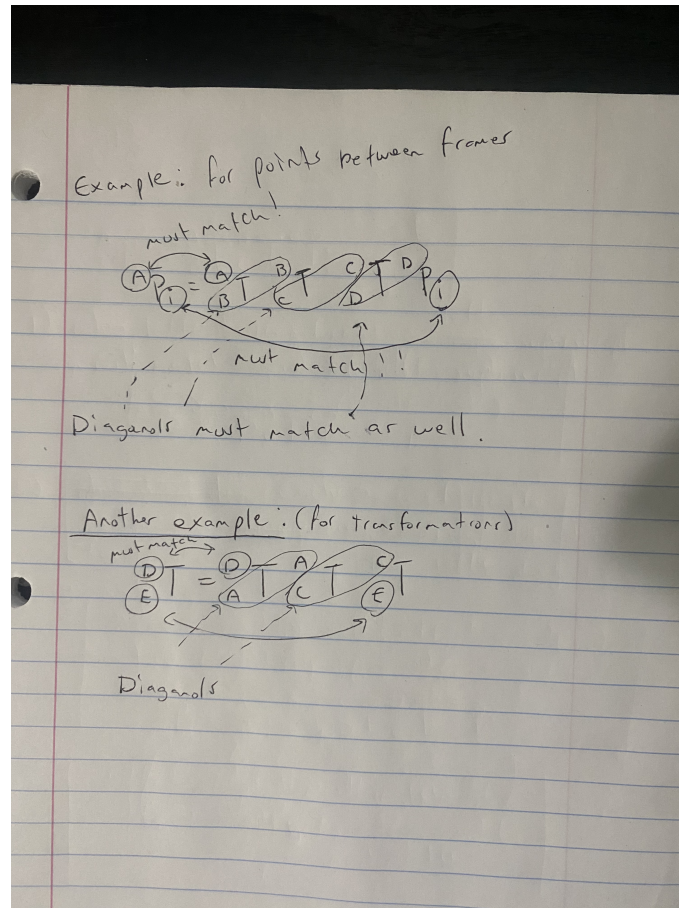 Example: for points between frames
must match!
ᴬPᵢ = ᴬ_B T ᴮ_C T ꟲ_D T ᴰPᵢ
must match!!
Diaganols must match as well.
Another example: (for transformations)
must match
ᴰ_E T = ᴰ_A T ᴬ_C T ꟲ_E T
Diaganols